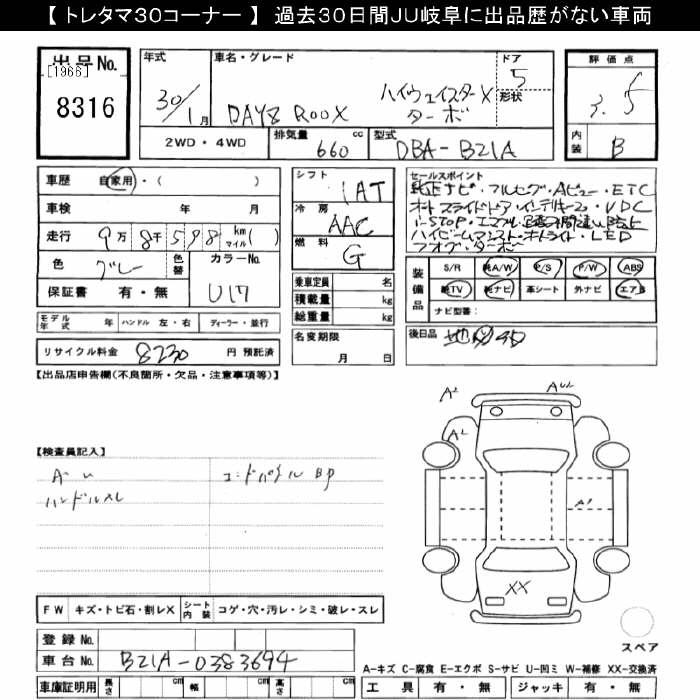 【 トレタマ30コーナー 】 過去30日間JU岐阜に出品歴がない車両
出品No.
[1966]
8316
年式
30/1月
車名・グレード
DAYZ ROOX
ハイウェイスターX
ターボ
ドア
5
形状
評価点
3.5
内装
B
2WD ・ 4WD
排気量
660
cc
型式
DBA-B21A
車歴 自家用・( )
車検 年 月
走行 9万8千598 km( )
マイル
色 グレー
色替
カラーNo.
U17
保証書 有・無
モデル年式 年 ハンドル 左・右 ディーラー・並行
リサイクル料金 8230 円 預託済
シフト
IAT
冷房
AAC
燃料
G
乗車定員 名
積載量 kg
総重量 kg
名変期限
月 日
セールスポイント
純正ナビ・フルセグ・Aビュー・ETC
オートスライドドア・インテリキー・VDC
ハイビームアシスト・オートライト・LED
フォグ・ターボ
装備品
S/R 純A/W P/S P/W ABS
純TV 純ナビ 革シート 外ナビ エアB
ナビ型番:
後日品
【出品店申告欄(不良箇所・欠品・注意事項等)】
【検査員記入】
A-U
コードパネルBP
ハンドルスレ
A2
AUL
A2
A1
XX
スペア
FW キズ・トビ石・割レX
シート内装 コゲ・穴・汚レ・シミ・破レ・スレ
登録 No.
車台 No. B21A-0383694
車庫証明用 長さ cm 幅 cm 高さ cm
A-キズ C-腐食 E-エクボ S-サビ U-凹ミ W-補修 XX-交換済
工具 有・無 ジャッキ 有・無